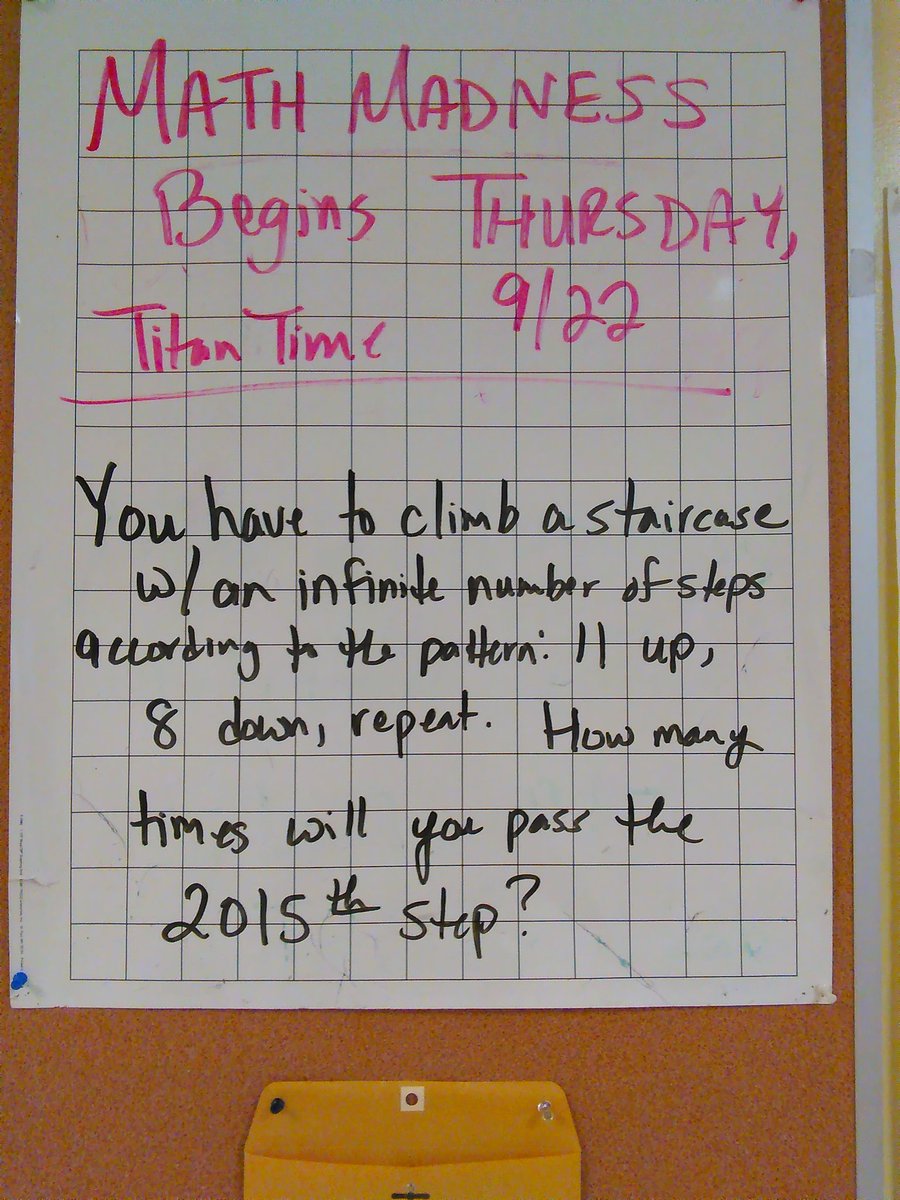 MATH MADNESS
Begins THURSDAY,
Titan Time 9/22
You have to climb a staircase
w/ an infinite number of steps
according to the pattern: 11 up,
8 down, repeat. How many
times will you pass the
2015th step?